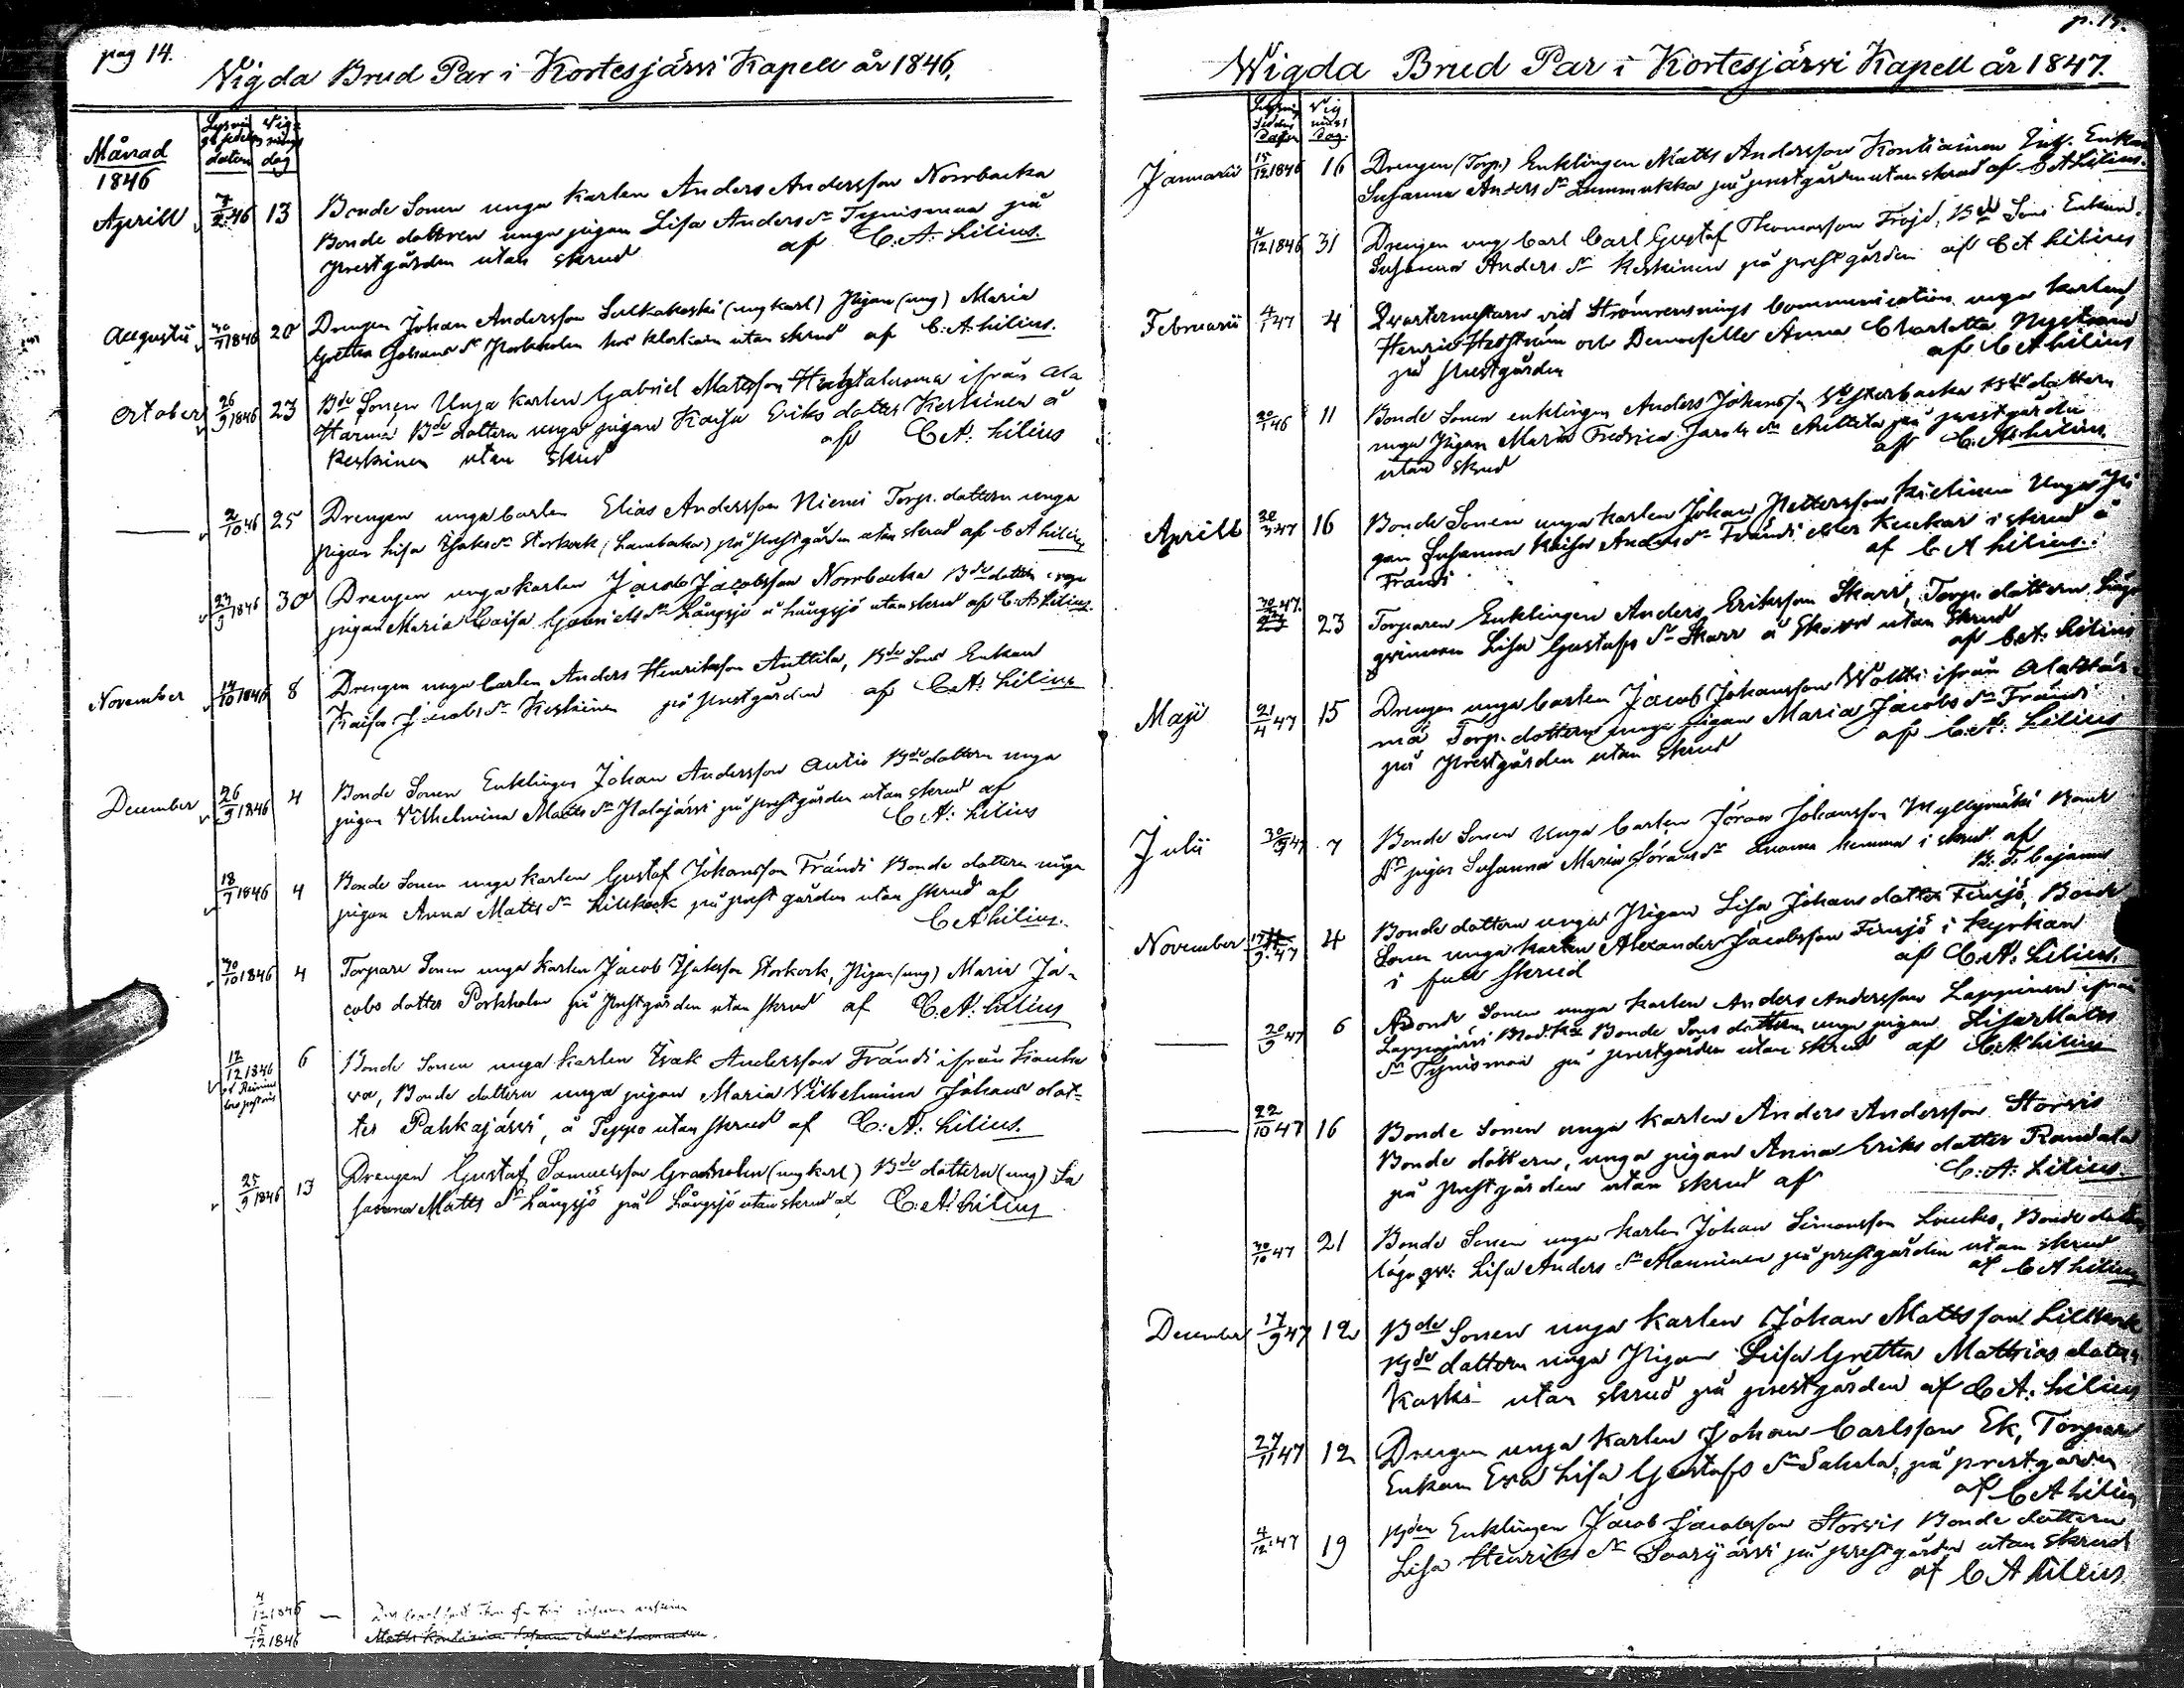 pag 14.
Vigda Brud Par i Kortesjärvi Kapell år 1846.
Månad
1846
Lysnin
gs sedelns
datum
Vig=
nings
dag
Aprill 7/2.46 13 Bonde Sonen unga karlen Anders Andersson Norrbacka
Bonde dottren unga pigan Lisa Anders dr Tynismaa på
prestgården utan skrud af C. A. Lilius.
Augustii 1846 20 Drengen Johan Andersson Sulkakoski (ung karl) Pigan (ung) Maria
Gretha Johans dr Porkholm hos utan skrud af C. A. Lilius.
October 26/9 1846 23 Bde Sonen Unga karlen Gabriel Mattsson ifrån Ala
Härmä Bde dottern unga pigan Kaisa Eriks dotter Keskinen å
Keskinen utan skrud af C. A. Lilius
2/10.46 25 Drengen unga carlen Elias Andersson Niemi Torp. dottern unga
pigan Lisa Isaks dr Storkock, på prestgården utan skrud af C A Lilius
23/9 1846 30 Drengen unga karlen Jacob Jacobsson Norrbacka Bde dottern unga
pigan Maria Caisa Gabriels dr Långsjö å Långsjö utan skrud af C. A. Lilius.
November 14/10 1846 8 Drengen unga carlen Anders Henriksson Anttila, Bde Sons Enkan
Kaisa Jacobs dr Keskinen på prestgården af C. A. Lilius
December 26/9 1846 4 Bonde Sonen Enklingen Johan Andersson Autio Bde dottern unga
pigan Vilhelmina Matts dr Halajärvi på prestgården utan skrud af
C. A. Lilius
18/9 1846 4 Bonde Sonen unga karlen Gustaf Johansson Frändi Bonde dottern unga
pigan Anna Matts dr Lillkock på prestgården utan skrud af
C A Lilius.
30/10 1846 4 Torpare Sonen unga karlen Jacob Isaksson Storkock, Pigan (ung) Maria Ja-
cobs dotter Porkholm på prestgården utan skrud af C. A. Lilius
12/12 1846 6 Bonde Sonen unga karlen Isak Andersson Frändi ifrån Kauha
va, Bonde dottern unga pigan Maria Vilhelmina Johans dot=
ter Pahkajärvi, å Seppo utan skrud af C. A. Lilius.
25/9 1846 13 Drengen Gustaf Samuelsson Granholm (ung karl) Bde dottern (ung) Su
sanna Matts dr Långsjö på Långsjö utan skrud af C. A. Lilius
4/12 1846
15/12 1846 Matts Kontiainen Susanna
p. 15.
Wigda Brud Par i Kortesjärvi Kapell år 1847.
Vig
nings
Dag.
Januarii 15/12 1846 16 Drengen (Torp.) Enklingen Matts Andersson Kontiainen Enkan
Susanna Anders dr Lummukka på prestgården utan skrud af C A Lilius.
4/12 1846 31 Drengen ung Carl Carl Gustaf Thomasson Fröjd, Bde Sons Enkan
Susanna Anders dr Keskinen på prestgården af C A Lilius
Februarii 4/1 47 4 Qvartermästarn vid Strömrensnings Communication unga karlen
Henric och Demoiselle Anna Charlotta Nyström
på prestgården af C A Lilius
20/1 46 11 Bonde Sonen enklingen Anders Johansson Westerbacka Bde dottern
unga Pigan Maria Fredrica Jacobs dr Anttila på prestgården
utan skrud af C. A. Lilius.
Aprill 30/3 47 16 Bonde Sonen unga karlen Johan Pettersson Kielinen Unga Pi
gan Susanna Kaisa Anders dr Frändi eller Kuckar i skrud å
Frändi af C A Lilius.
30/3 47. 23 Torparen Enklingen Anders Eriksson Skarr, Torp. dottern Läge
qvinnan Lisa Gustafs dr Skarr å Skarr utan skrud
af C. A. Lilius
Maji 21/4 47 15 Drengen unga carlen Jacob Johansson Woltti ifrån Alahär-
mä Torp. dottern unga pigan Maria Jacobs dr Frändi
på prestgården utan skrud af C. A. Lilius
Julii 7 Bonde Sonen Unga Carlen Jöran Johansson Myllymäki Bonde
dr pigan Susanna Maria Jörans dr Luoma hemma i skrud af
B. F. Cajanus
November 4 Bonde dottern unga Pigan Lisa Johans dotter Finnsjö, Bonde
Sonen unga karlen Alexander Jacobsson Finnsjö i kyrkan
i full skrud af C. A. Lilius.
20/9 47 6 Bonde Sonen unga karlen Anders Andersson Lappinen ifrån
Lappajärvi Bonde Sons dottern unga pigan Lisa Matts
dr Tynismaa på prestgården utan skrud af C A Lilius
22/10 47 16 Bonde Sonen unga karlen Anders Andersson Storvis
Bonde dottern, unga pigan Anna Eriks dotter Randala
på prestgården utan skrud af C. A. Lilius.
30/10 47 21 Bonde Sonen unga karlen Johan Simonsson Louko, Bonde dottern
läge qv: Lisa Anders dr Manninen på prestgården utan skrud
af C A Lilius
December 17/9 47 12 Bde Sonen unga karlen Johan Mattsson Lillkock
Bde dottern unga Pigan Lisa Gretha Mathias dotter
Koski utan skrud på prestgården af C A. Lilius
27/11 47 12 Drengen unga karlen Johan Carlsson Ek, Torpare
Enkan Eva Lisa Gustafs dr Sahala, på prestgården
af C A Lilius
4/12 47 19 Bden Enklingen Jacob Jacobsson Storvis Bonde dottern
Lisa Henriks dr Saarijärvi på prestgården utan skrud
af C A Lilius